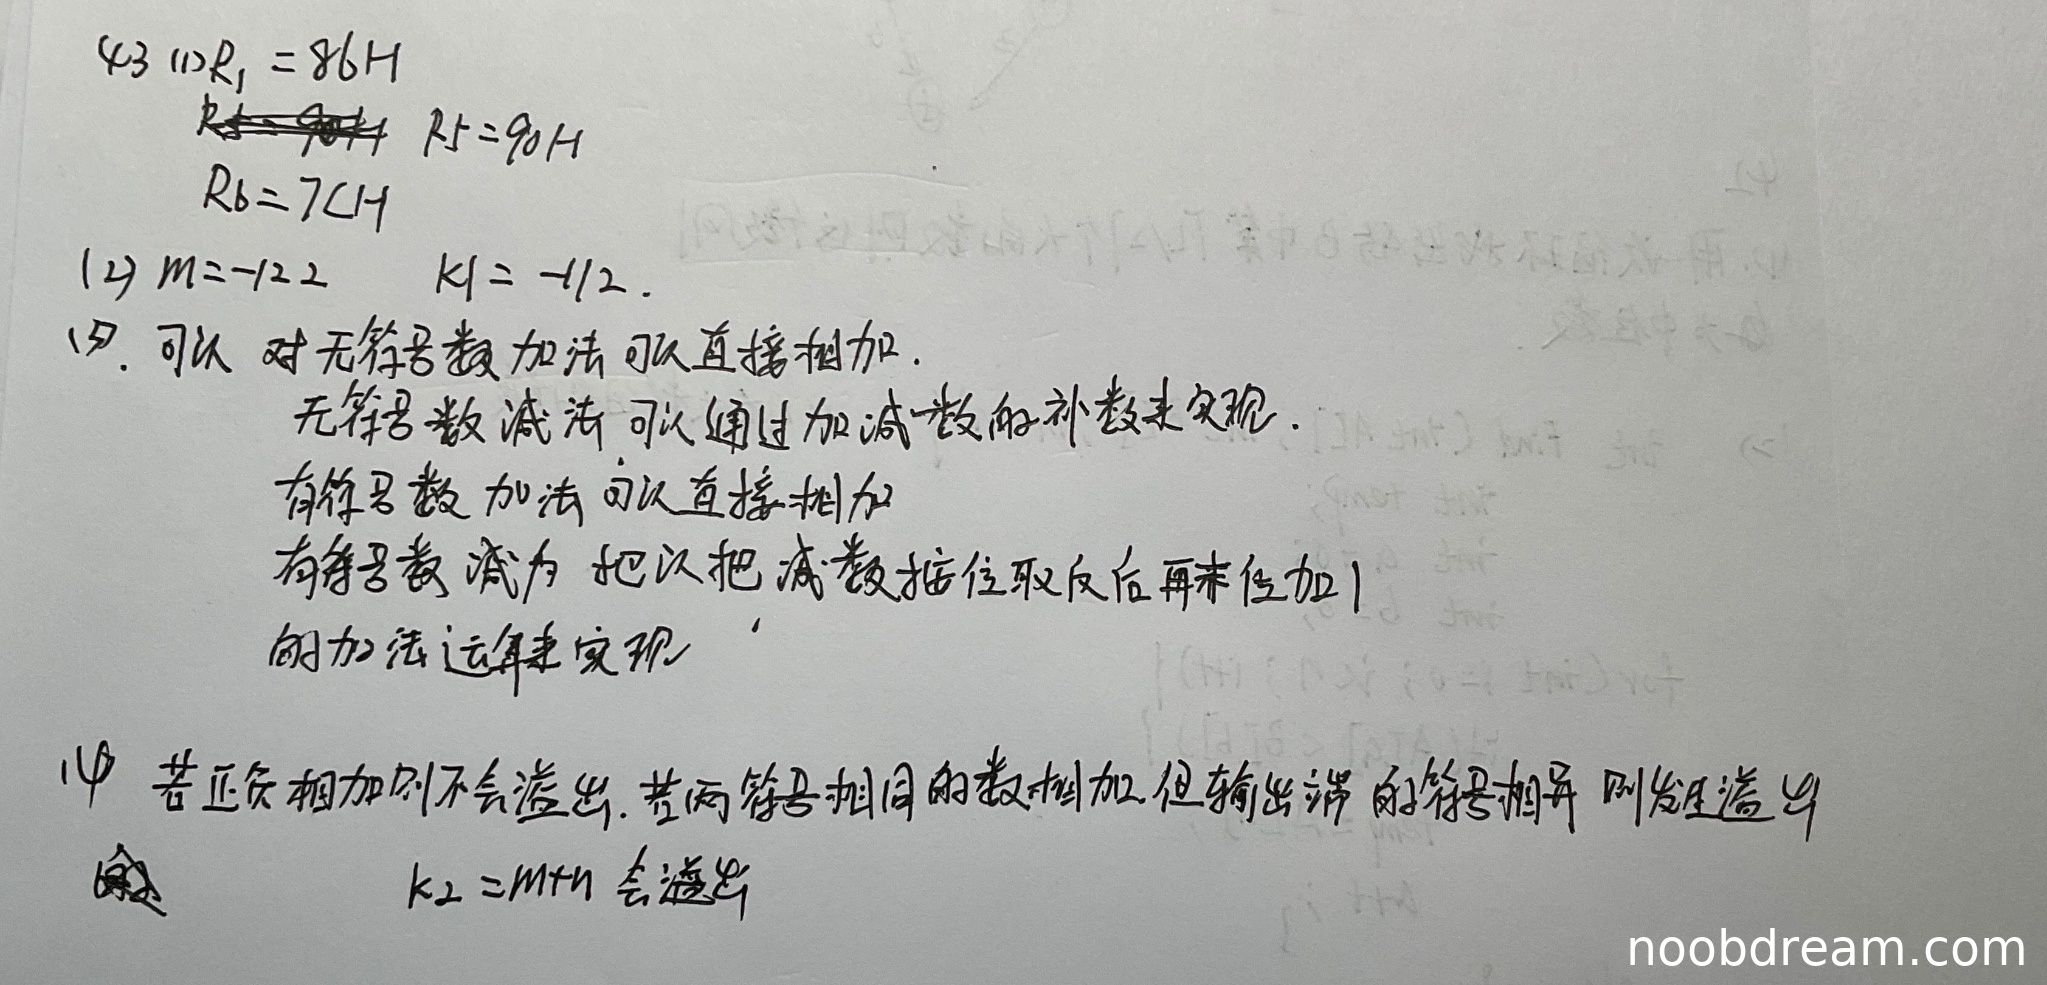 43 (1) R1 = 86H
R5 = 90H
R6 = 7CH
(2) m = -122 k1 = -112.
(3). 可以 对无符号数加法可以直接相加.
无符号数减法可以通过加减数的补数来实现.
有符号数加法可以直接相加
有符号数减 把减数按位取反后再末位加1
的加法运算来实现
(4) 若正负相加则不会溢出.若两符号相同的数相加.但输出端的符号相异则发生溢出
k2 = m+n 会溢出
noobdream.com